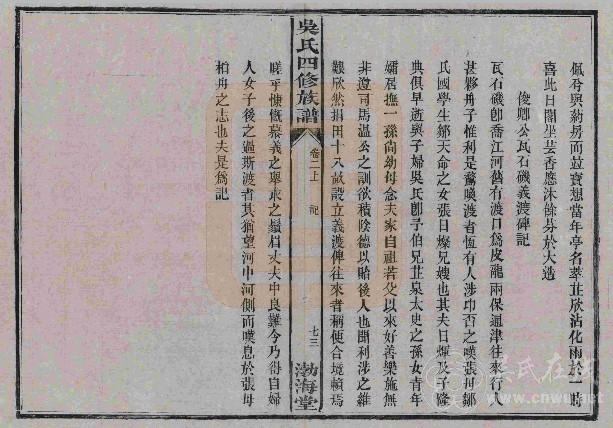 佩兮與葯房而並寶想當年亭名萃芷欣沾化雨於一時
喜此日閣坐芸香應沐餘芬於大造
俊卿公瓦石磯義渡碑記
瓦石磯卽喬江河舊有渡曰爲皮龍兩保通津往來行人
甚夥舟子惟利是騖喚渡者恆有人涉卬否之嘆張母鄒
氏國學生鄒天命之女張日燦兄嫂也其夫日煇及子隆
典俱早逝與子婦吳氏卽予伯兄芷泉太史之孫女青年
孀居撫一孫尚幼母念夫家自祖若父以來好善樂施無
非遵司馬溫公之訓欲積陰德以貽後人也聞利涉之維
艱欣然捐田十八畝設立義渡俾往來者稱便合境頼焉
嗟乎慷慨慕義之舉求之鬚眉丈夫中良難今乃得自婦
人女子後之過斯渡者其猶望河中河側而嘆息於張母
柏舟之志也夫是爲記
吳氏四修族譜
卷二上
記
七三
渤海堂
吳氏在线
www.cnwu.net